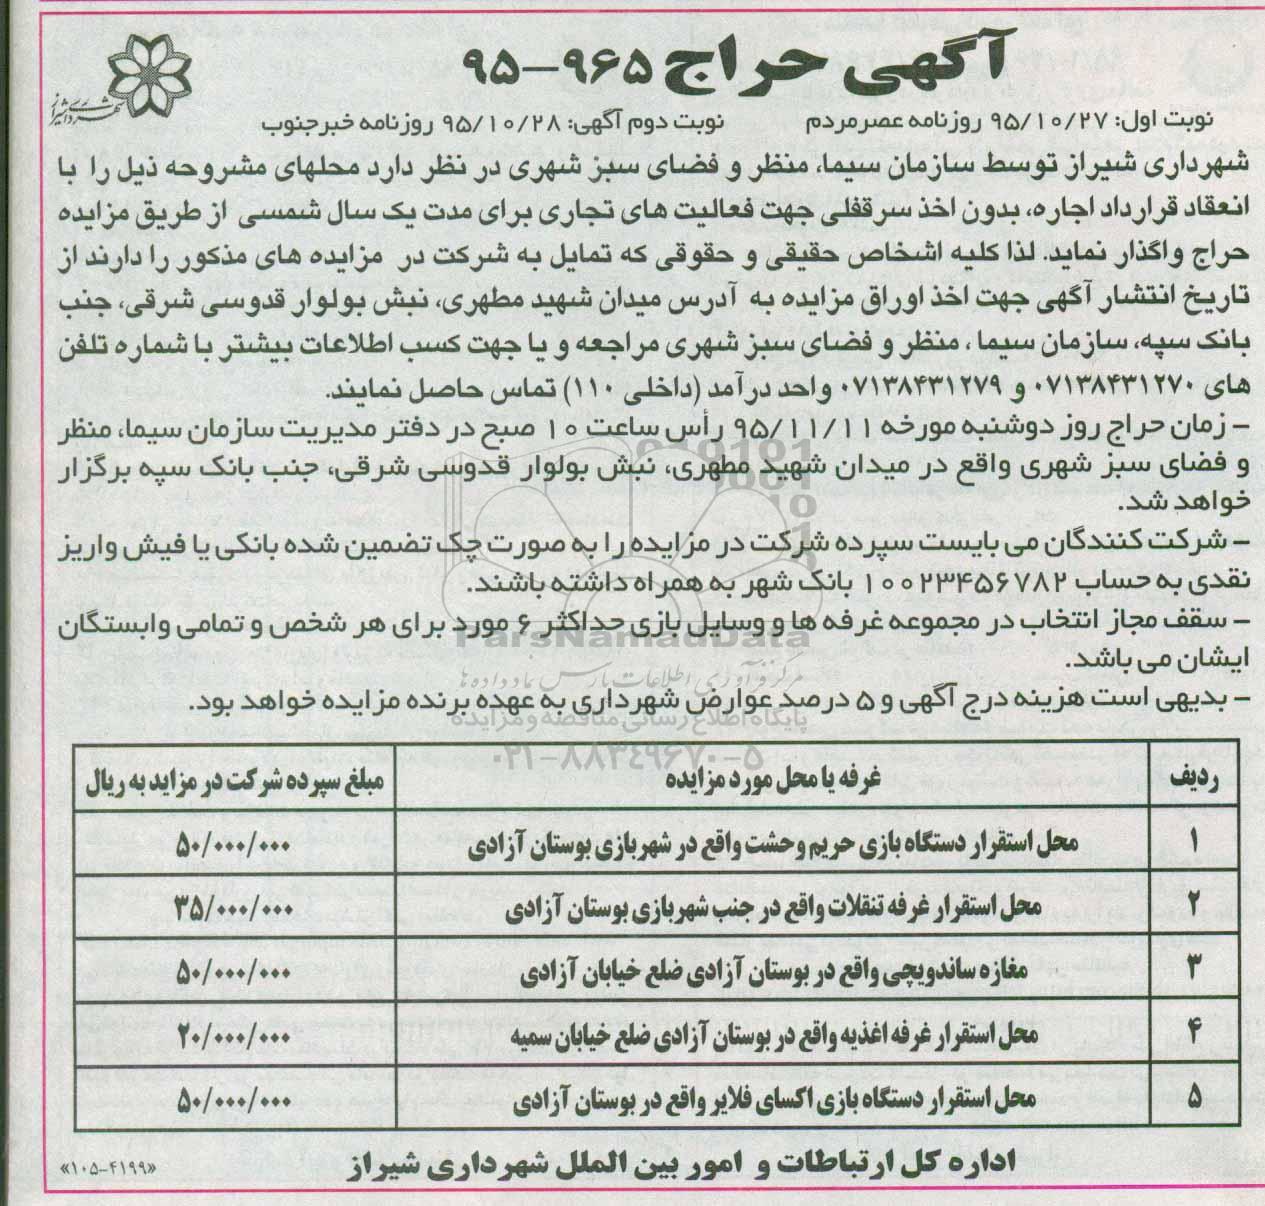 آگهی حراج ۹۶۵-۹۵
شهرداری شیراز
نوبت اول: ۹۵/۱۰/۲۷ روزنامه عصرمردم نوبت دوم آگهی: ۹۵/۱۰/۲۸ روزنامه خبرجنوب
شهرداری شیراز توسط سازمان سیما، منظر و فضای سبز شهری در نظر دارد محلهای مشروحه ذیل را با
انعقاد قرارداد اجاره، بدون اخذ سرقفلی جهت فعالیت های تجاری برای مدت یک سال شمسی از طریق مزایده
حراج واگذار نماید. لذا کلیه اشخاص حقیقی و حقوقی که تمایل به شرکت در مزایده های مذکور را دارند از
تاریخ انتشار آگهی جهت اخذ اوراق مزایده به آدرس میدان شهید مطهری، نبش بولوار قدوسی شرقی، جنب
بانک سپه، سازمان سیما، منظر و فضای سبز شهری مراجعه و یا جهت کسب اطلاعات بیشتر با شماره تلفن
های ۰۷۱۳۸۴۳۱۲۷۰ و ۰۷۱۳۸۴۳۱۲۷۹ واحد درآمد (داخلی ۱۱۰) تماس حاصل نمایند.
– زمان حراج روز دوشنبه مورخه ۹۵/۱۱/۱۱ رأس ساعت ۱۰ صبح در دفتر مدیریت سازمان سیما، منظر
و فضای سبز شهری واقع در میدان شهید مطهری، نبش بولوار قدوسی شرقی، جنب بانک سپه برگزار
خواهد شد.
– شرکت کنندگان می بایست سپرده شرکت در مزایده را به صورت چک تضمین شده بانکی یا فیش واریز
نقدی به حساب ۱۰۰۲۳۴۵۶۷۸۲ بانک شهر به همراه داشته باشند.
– سقف مجاز انتخاب در مجموعه غرفه ها و وسایل بازی حداکثر ۶ مورد برای هر شخص و تمامی وابستگان
ایشان می باشد.
– بدیهی است هزینه درج آگهی و ۵ درصد عوارض شهرداری به عهده برنده مزایده خواهد بود.
ParsNamadData
مرکز فرآوری اطلاعات پارس نماد داده ها
پایگاه اطلاع رسانی مناقصه و مزایده
۰۲۱-۸۸۳۴۹۶۷۰-۵
ردیف غرفه یا محل مورد مزایده مبلغ سپرده شرکت در مزاید به ریال
۱ محل استقرار دستگاه بازی حریم وحشت واقع در شهربازی بوستان آزادی ۵۰/۰۰۰/۰۰۰
۲ محل استقرار غرفه تنقلات واقع در جنب شهربازی بوستان آزادی ۳۵/۰۰۰/۰۰۰
۳ مغازه ساندویچی واقع در بوستان آزادی ضلع خیابان آزادی ۵۰/۰۰۰/۰۰۰
۴ محل استقرار غرفه اغذیه واقع در بوستان آزادی ضلع خیابان سمیه ۲۰/۰۰۰/۰۰۰
۵ محل استقرار دستگاه بازی اکسای فلایر واقع در بوستان آزادی ۵۰/۰۰۰/۰۰۰
اداره کل ارتباطات و امور بین الملل شهرداری شیراز
«۱۰۵-۴۱۹۹»